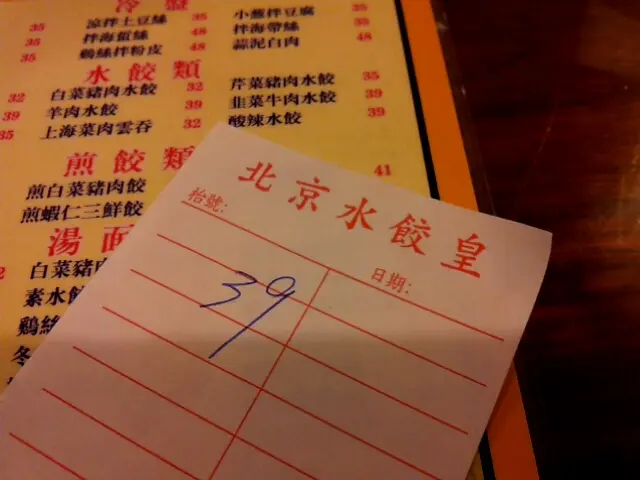 冷盤
35 涼拌土豆絲 35 小蔥拌豆腐 35
35 拌海蜇絲 48 拌海帶絲 35
鷄絲拌粉皮 48 蒜泥白肉 48
水餃類
32 白菜豬肉水餃 32 芹菜豬肉水餃 35
39 羊肉水餃 39 韭菜牛肉水餃 39
35 上海菜肉雲吞 32 酸辣水餃 39
煎餃類
煎白菜豬肉餃 41
煎蝦仁三鮮餃
湯面
白菜豬
素水餃
鷄絲
冬
北京水餃皇
枱號:
日期:
39